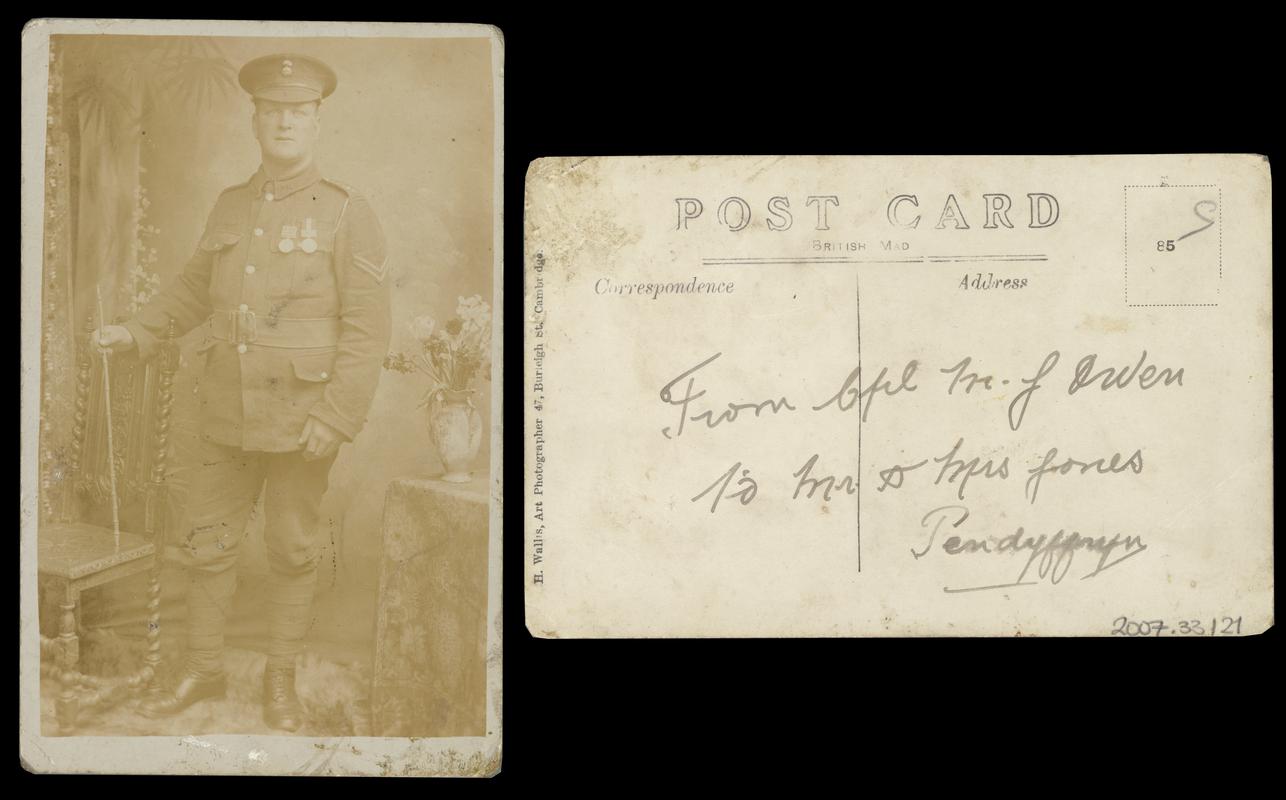 POST CARD
BRITISH MAD
Correspondence
Address
85
H. Wallis, Art Photographer 47, Burleigh St. Cambridge.
From Cpl M. J Owen
To Mr & Mrs Jones
Pendyffryn
2007.33/21